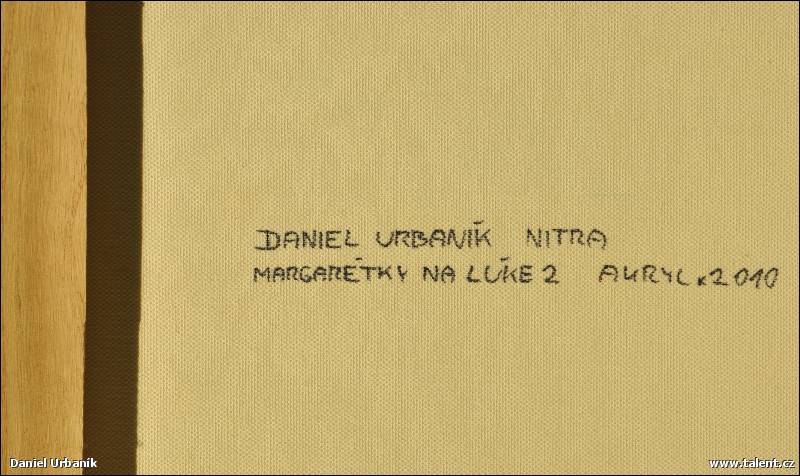 DANIEL URBANÍK NITRA
MARGARÉTKY NA LÚKE 2 AKRYL x 2010
Daniel Urbaník
www.talent.cz